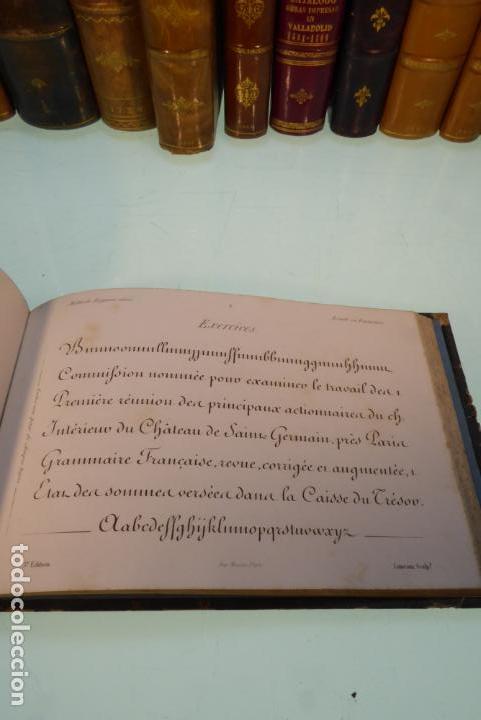 CATALOGO
OBRAS IMPRESAS
EN
VALLADOLID
Exercices.
Bnunoounullnunyjpunuffinunbbnnnggnunhhnunu
Commission nommée pour examiner le travail des
Première réunion des principaux actionnaires du ch.
Intérieur du Château de Saint Germain, près Paris
Grammaire Française, revue, corrigée et augmentée,
Etat des sommes versées dans la Caisse du Trésor.
Aabcdefghijklmnopqrstuvwxyz
Edition
Sculpt
todocoleccion